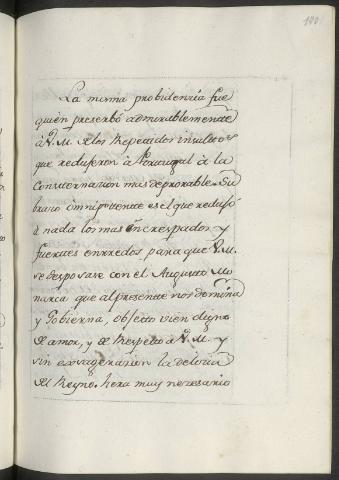 140
La misma probidenzia fue
quien preserbó admirablemente
à V. M. de los Repetidos insultos
que redujeron à Portugal à la
Consternazion mas deprorable. Su
brazo omnipotente es el que redujó
à nada los mas encrespados y
fuertes enrredos, para que V. M.
se desposase con el Augusto Mo
narca que al presente nos domina
y Gobierna, objecto vien digno
de amor, y de Respecto à V. M. y
sin exsagerazion la delicia
del Reyno. hera muy nezesario